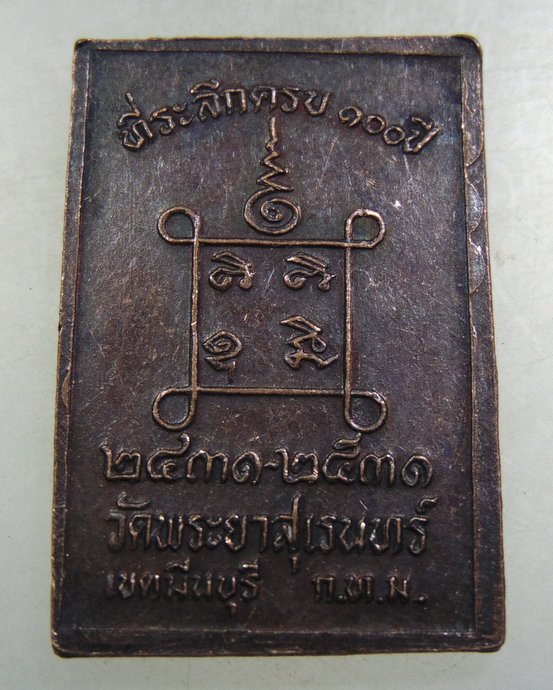 ที่ระลึกครบ ๑๐๐ ปี
๒๔๓๑-๒๕๓๑
วัดพระยาสุเรนทร์
เขตมีนบุรี ก.ท.ม.